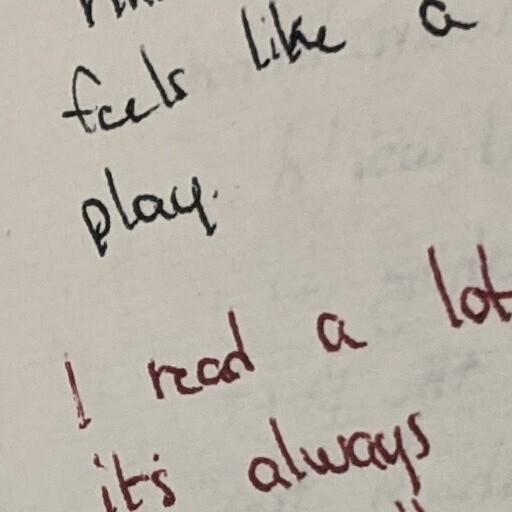 feels like a
play.
I read a lot
it's always